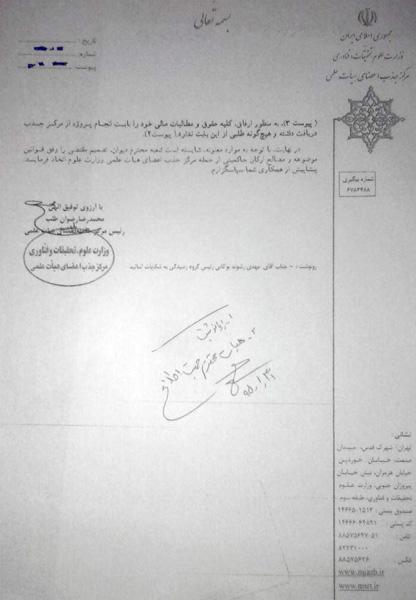 بسمه تعالی
جمهوری اسلامی ایران
وزارت علوم، تحقیقات و فناوری
مرکز جذب اعضای هیأت علمی
تاریخ :
شماره :
پیوست :
( پیوست ۳)، به منظور ارفاق، کلیه حقوق و مطالبات مالی خود را بابت انجام پروژه از مرکز جذب
دریافت داشته و هیچ‌گونه طلبی از این بابت ندارد.( پیوست۲).
در نهایت، با توجه به موارد معنونه، شایسته است شعبه محترم دیوان، تصمیم مقتضی را وفق قوانین
موضوعه و مصالح ارکان حاکمیتی از جمله مرکز جذب اعضای هیأت علمی وزارت علوم اتخاذ فرمایند.
پیشاپیش از همکاری شما سپاسگزارم.
شماره پیگیری
۶۷۸۳۴۸۸
با آرزوی توفیق الهی
محمدرضا رضوان طلب
رئیس مرکز جذب اعضای هیأت علمی
وزارت علوم، تحقیقات و فناوری
مرکز جذب اعضای هیأت علمی
رونوشت : - جناب آقای مهدی رشوند بوکانی رئیس گروه رسیدگی به شکایات اساتید
۹۵/۱/۳۱
نشانی :
تهران: شهرک قدس، میدان
صنعت، خیابان خوردین
خیابان هرمزان، نبش خیابان
پیروزان جنوبی، وزارت علوم
تحقیقات و فناوری، طبقه سوم
صندوق پستی : ۱۵۱۳-۱۴۶۶۵
کد پستی : ۶۴۸۹۱-۱۴۶۶۶
تلفن : ۸۸۵۷۵۶۴۷-۵۱
۸۲۲۳۱۰۰۰
فکس : ۸۸۵۷۵۶۳۶
www.mjazb.ir
www.msrt.ir